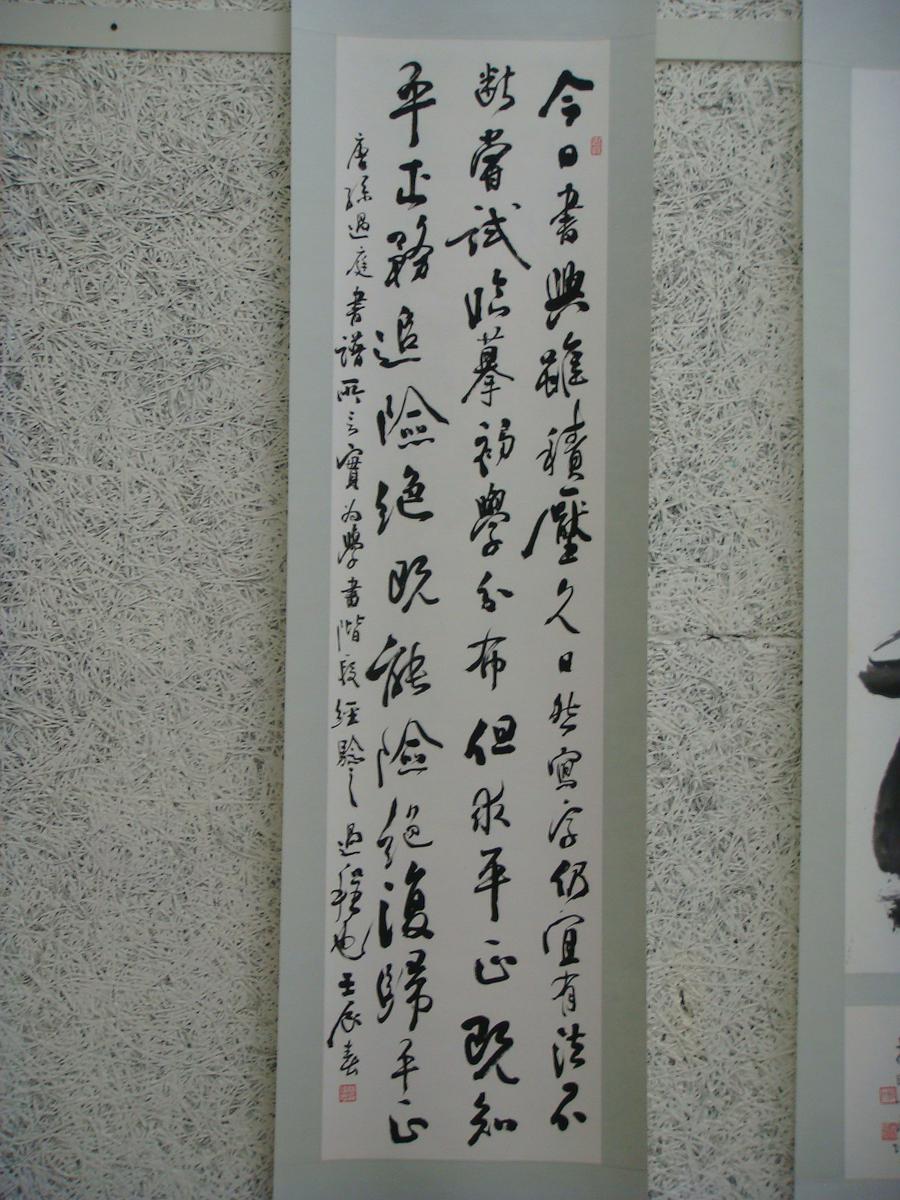 今日書興雖積壓久日然寫字仍宜有法不
斷嘗試臨摹初學分布但求平正既知
平正務追險絕既能險絕復歸平正
唐孫過庭書譜所言實為學書階段經驗之過程也壬辰春